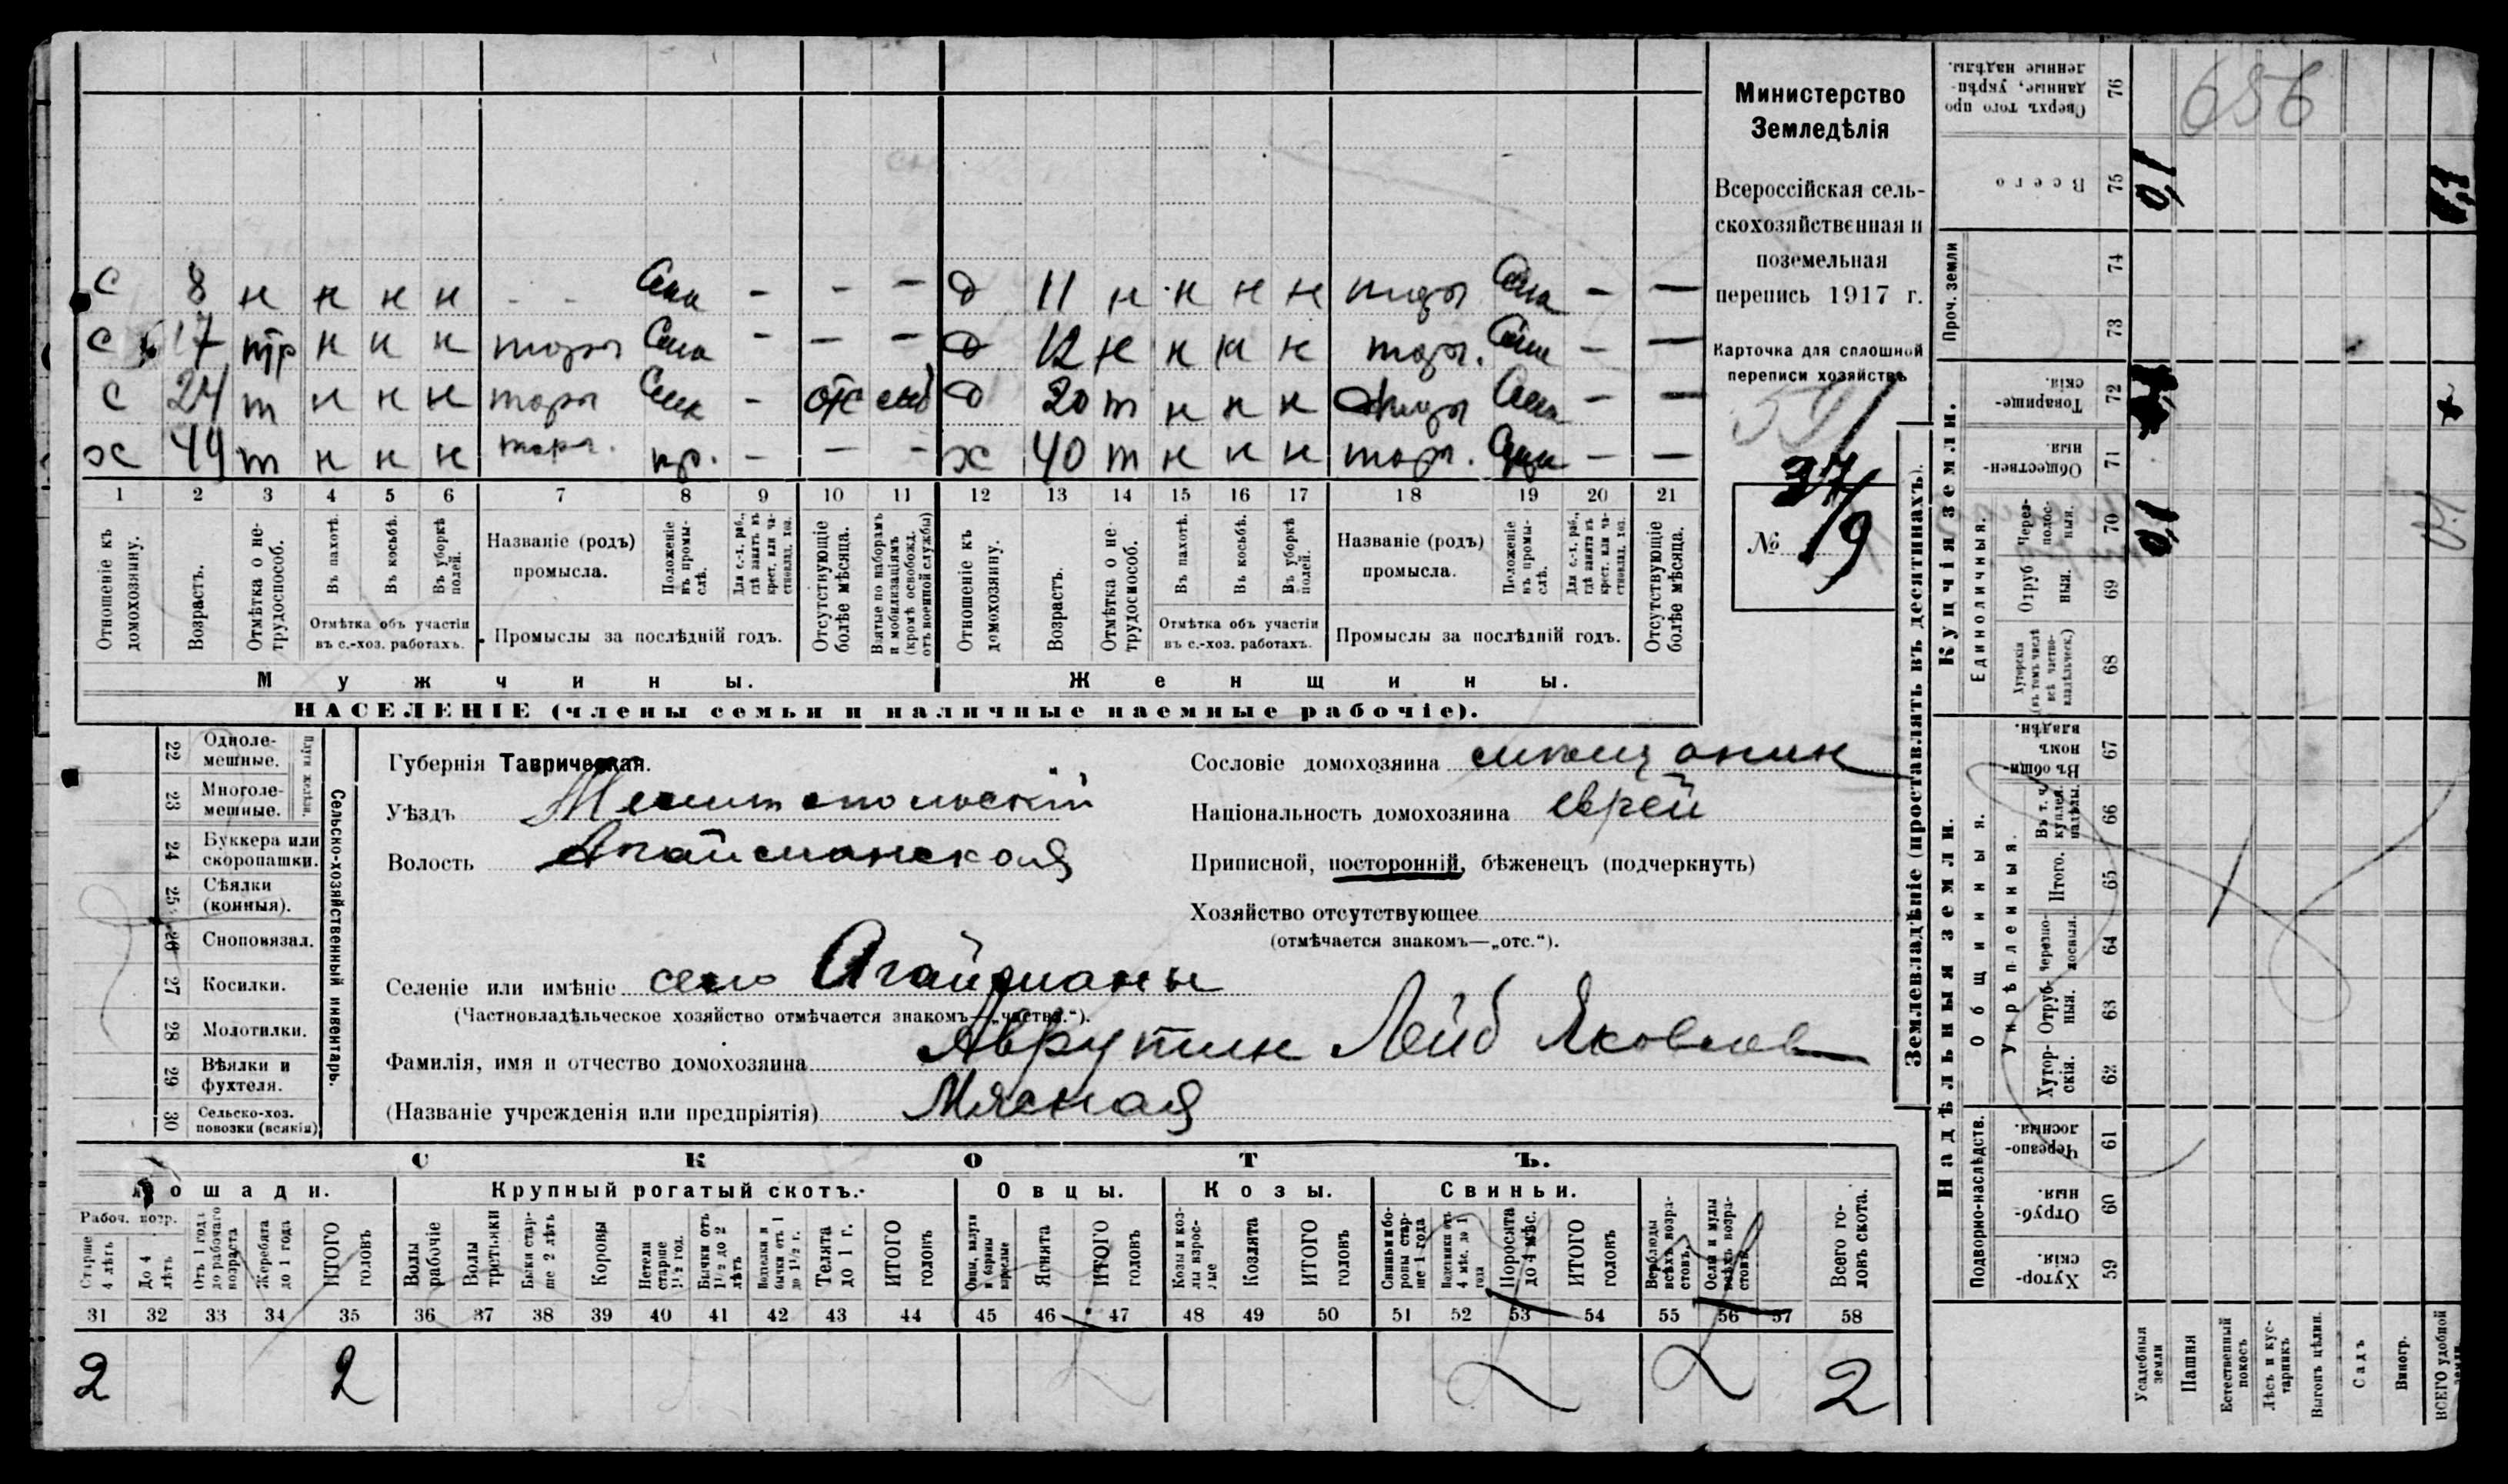 с 8 н н н н - - - - - д 11 н н н н - -
с 17 тр н н н торг - - - д 12 н н н н торг. - -
с 24 т н н н торг - отс д 20 т н н н - -
х 49 т н н н торг. пр. - - - х 40 т н н н торг. - -
1 2 3 4 5 6 7 8 9 10 11 12 13 14 15 16 17 18 19 20 21
Отношеніе къ домохозяину.
Возрастъ.
Отмѣтка о нетрудоспособ.
Въ пахотѣ.
Въ косьбѣ.
Въ уборкѣ полей.
Отмѣтка объ участіи
въ с.-хоз. работахъ.
Названіе (родъ)
промысла.
Положеніе въ промыслѣ.
Промыслы за послѣдній годъ.
Отсутствующіе болѣе мѣсяца.
Взятые по наборамъ и мобилизаціямъ (кромѣ освобожд. отъ военной службы)
Отношеніе къ домохозяину.
Возрастъ.
Отмѣтка о нетрудоспособ.
Въ пахотѣ.
Въ косьбѣ.
Въ уборкѣ полей.
Отмѣтка объ участіи
въ с.-хоз. работахъ.
Названіе (родъ)
промысла.
Положеніе въ промыслѣ.
Промыслы за послѣдній годъ.
Отсутствующіе болѣе мѣсяца.
Мужчины.
Женщины.
НАСЕЛЕНІЕ (члены семьи и наличные наемные рабочіе).
Министерство
Земледѣлія
Всероссійская сель-
скохозяйственная и
поземельная
перепись 1917 г.
Карточка для сплошной
переписи хозяйствъ
№ 37/19
22 Одноле-
мешные.
23 Многоле-
мешные.
24 Буккера или
скоропашки.
25 Сѣялки
(конныя).
26 Сноповязал.
27 Косилки.
28 Молотилки.
29 Вѣялки и
фухтеля.
30 Сельско-хоз.
повозки (всякія)
Сельско-хозяйственный инвентарь.
Губернія Таврическая.
Уѣздъ Мелитопольскій
Волость Агайманская
Селеніе или имѣніе село Агайманы
(Частновладѣльческое хозяйство отмѣчается знакомъ—„частн.“).
Фамилія, имя и отчество домохозяина Аврутин Лейб Яковлев
(Названіе учрежденія или предпріятія) Мясная
Сословіе домохозяина мѣщанин
Національность домохозяина еврей
Приписной, посторонній, бѣженецъ (подчеркнуть)
Хозяйство отсутствующее
(отмѣчается знакомъ—„отс.“).
СКОТЪ.
Лошади.
Крупный рогатый скотъ.
Овцы.
Козы.
Свиньи.
Рабоч. возр.
Старше 4 лѣтъ
До 4 лѣтъ
Отъ 1 года до рабочаго возраста
Жеребята до 1 года
ИТОГО головъ
Волы рабочіе
Волы третьяки
Быки старше 2 лѣтъ
Коровы
Нетели старше 1½ год.
Бычки отъ 1½ до 2 лѣтъ
Телята до 1 г.
ИТОГО головъ
Ягнята
ИТОГО головъ
Козы и козлы взрослые
Козлята
ИТОГО головъ
Свиньи и бороны старше 1 года
Поросята до 4 мѣс.
ИТОГО головъ
Верблюды всѣхъ возрастовъ.
Ослы и мулы всѣхъ возрастовъ
Всего головъ скота.
31 32 33 34 35 36 37 38 39 40 41 42 43 44 45 46 47 48 49 50 51 52 53 54 55 56 57 58
2 2 2
Землевладѣніе (проставлять въ десятинахъ).
Надѣльныя земли.
Купчія земли.
Проч. земли
Подворно-наслѣдств.
Общинныя.
Укрѣпленныя.
Единоличныя.
Сверхъ того про
данные, укрѣп-
ленные надѣлы.
76
Всего
75
74
73
Товарище-
скія.
72
Обществен-
ныя.
71
Черезполосныя.
70
Отрубныя.
69
Хуторскія (въ томъ числѣ всѣ частновладѣльческ.)
68
Въ общин-
номъ
владѣн.
67
Въ т. ч. куплен. надѣлы.
66
Итого.
65
Черезполосныя.
64
Отрубныя.
63
Хуторскія.
62
Черезпо-
лосныя.
61
Отруб-
ныя.
60
Хутор-
скія.
59
Усадебныя земли
Пашня
Естественный покосъ
Лѣсъ и кустарникъ
Выгонъ цѣлин.
Садъ
Виногр.
ВСЕГО удобной земли
656
0,1
0,1
0,1
0,1